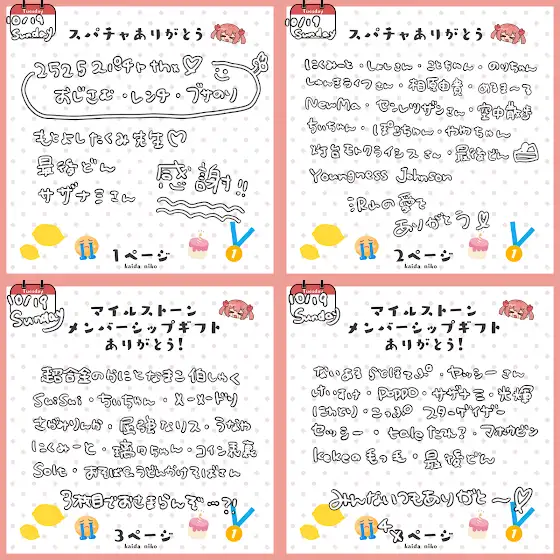 Tuesday
10/19
Sunday
スパチャありがとう
2525スパチャthx♡
おじさむ・レンチ・ブサのり
もとよしたくみ先生♡
最後どん
サザナミさん
感謝!!
1ページ
kaida niko
Tuesday
10/19
Sunday
スパチャありがとう
にくみーと・しゅしさん・ことちゃん・のりちゃん
しゅんすライフさん・相原由貴・めるま〜る
NewMa・センレツザンさん・空中散歩
ちぃちゃん・ぽこちゃん・ややちゃん
灯台モトクライシスさん・最後どん
Youngness Johnson
沢山の愛を
ありがとう
2ページ
kaida niko
Tuesday
10/19
Sunday
マイルストーン
メンバーシップギフト
ありがとう!
超合金のかにとなまこ伯しゃく
SuiSui・ちぃちゃん・X-X-ドリ
さがみりんか・屈強なリス・うなや
にくみーと・璃のちゃん・コイン裏表
Solt・おそばにうどんかけてばさん
3枚目でおさまらんぞ…?!
3ページ
kaida niko
Tuesday
10/19
Sunday
マイルストーン
メンバーシップギフト
ありがとう!
ヤッシーさん
けいすけ・PePPO・サザナミ・光輝
こっぷ・スターゲイザー
セッシー・taleたれ?・マホウビン
kekeo毛っ毛・最後どん
みんないつもありがと〜♡
4ページ
kaida niko